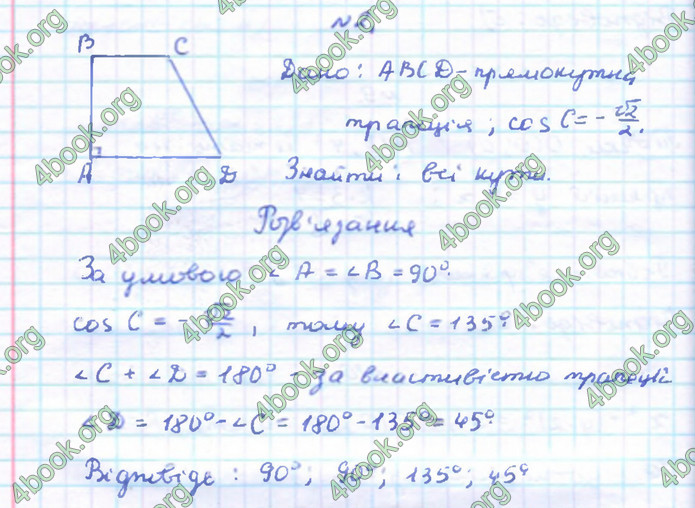 B C
A D
Дано: ABCD - прямокутна
трапеція; cos C = -√2/2.
Знайти: всі кути.
Розв'язання
За умовою ∠A = ∠B = 90°.
cos C = -√2/2, тому ∠C = 135°.
∠C + ∠D = 180° - за властивістю трапеції
∠D = 180° - ∠C = 180° - 135° = 45°.
Відповідь: 90°; 90°; 135°; 45°
4book.org